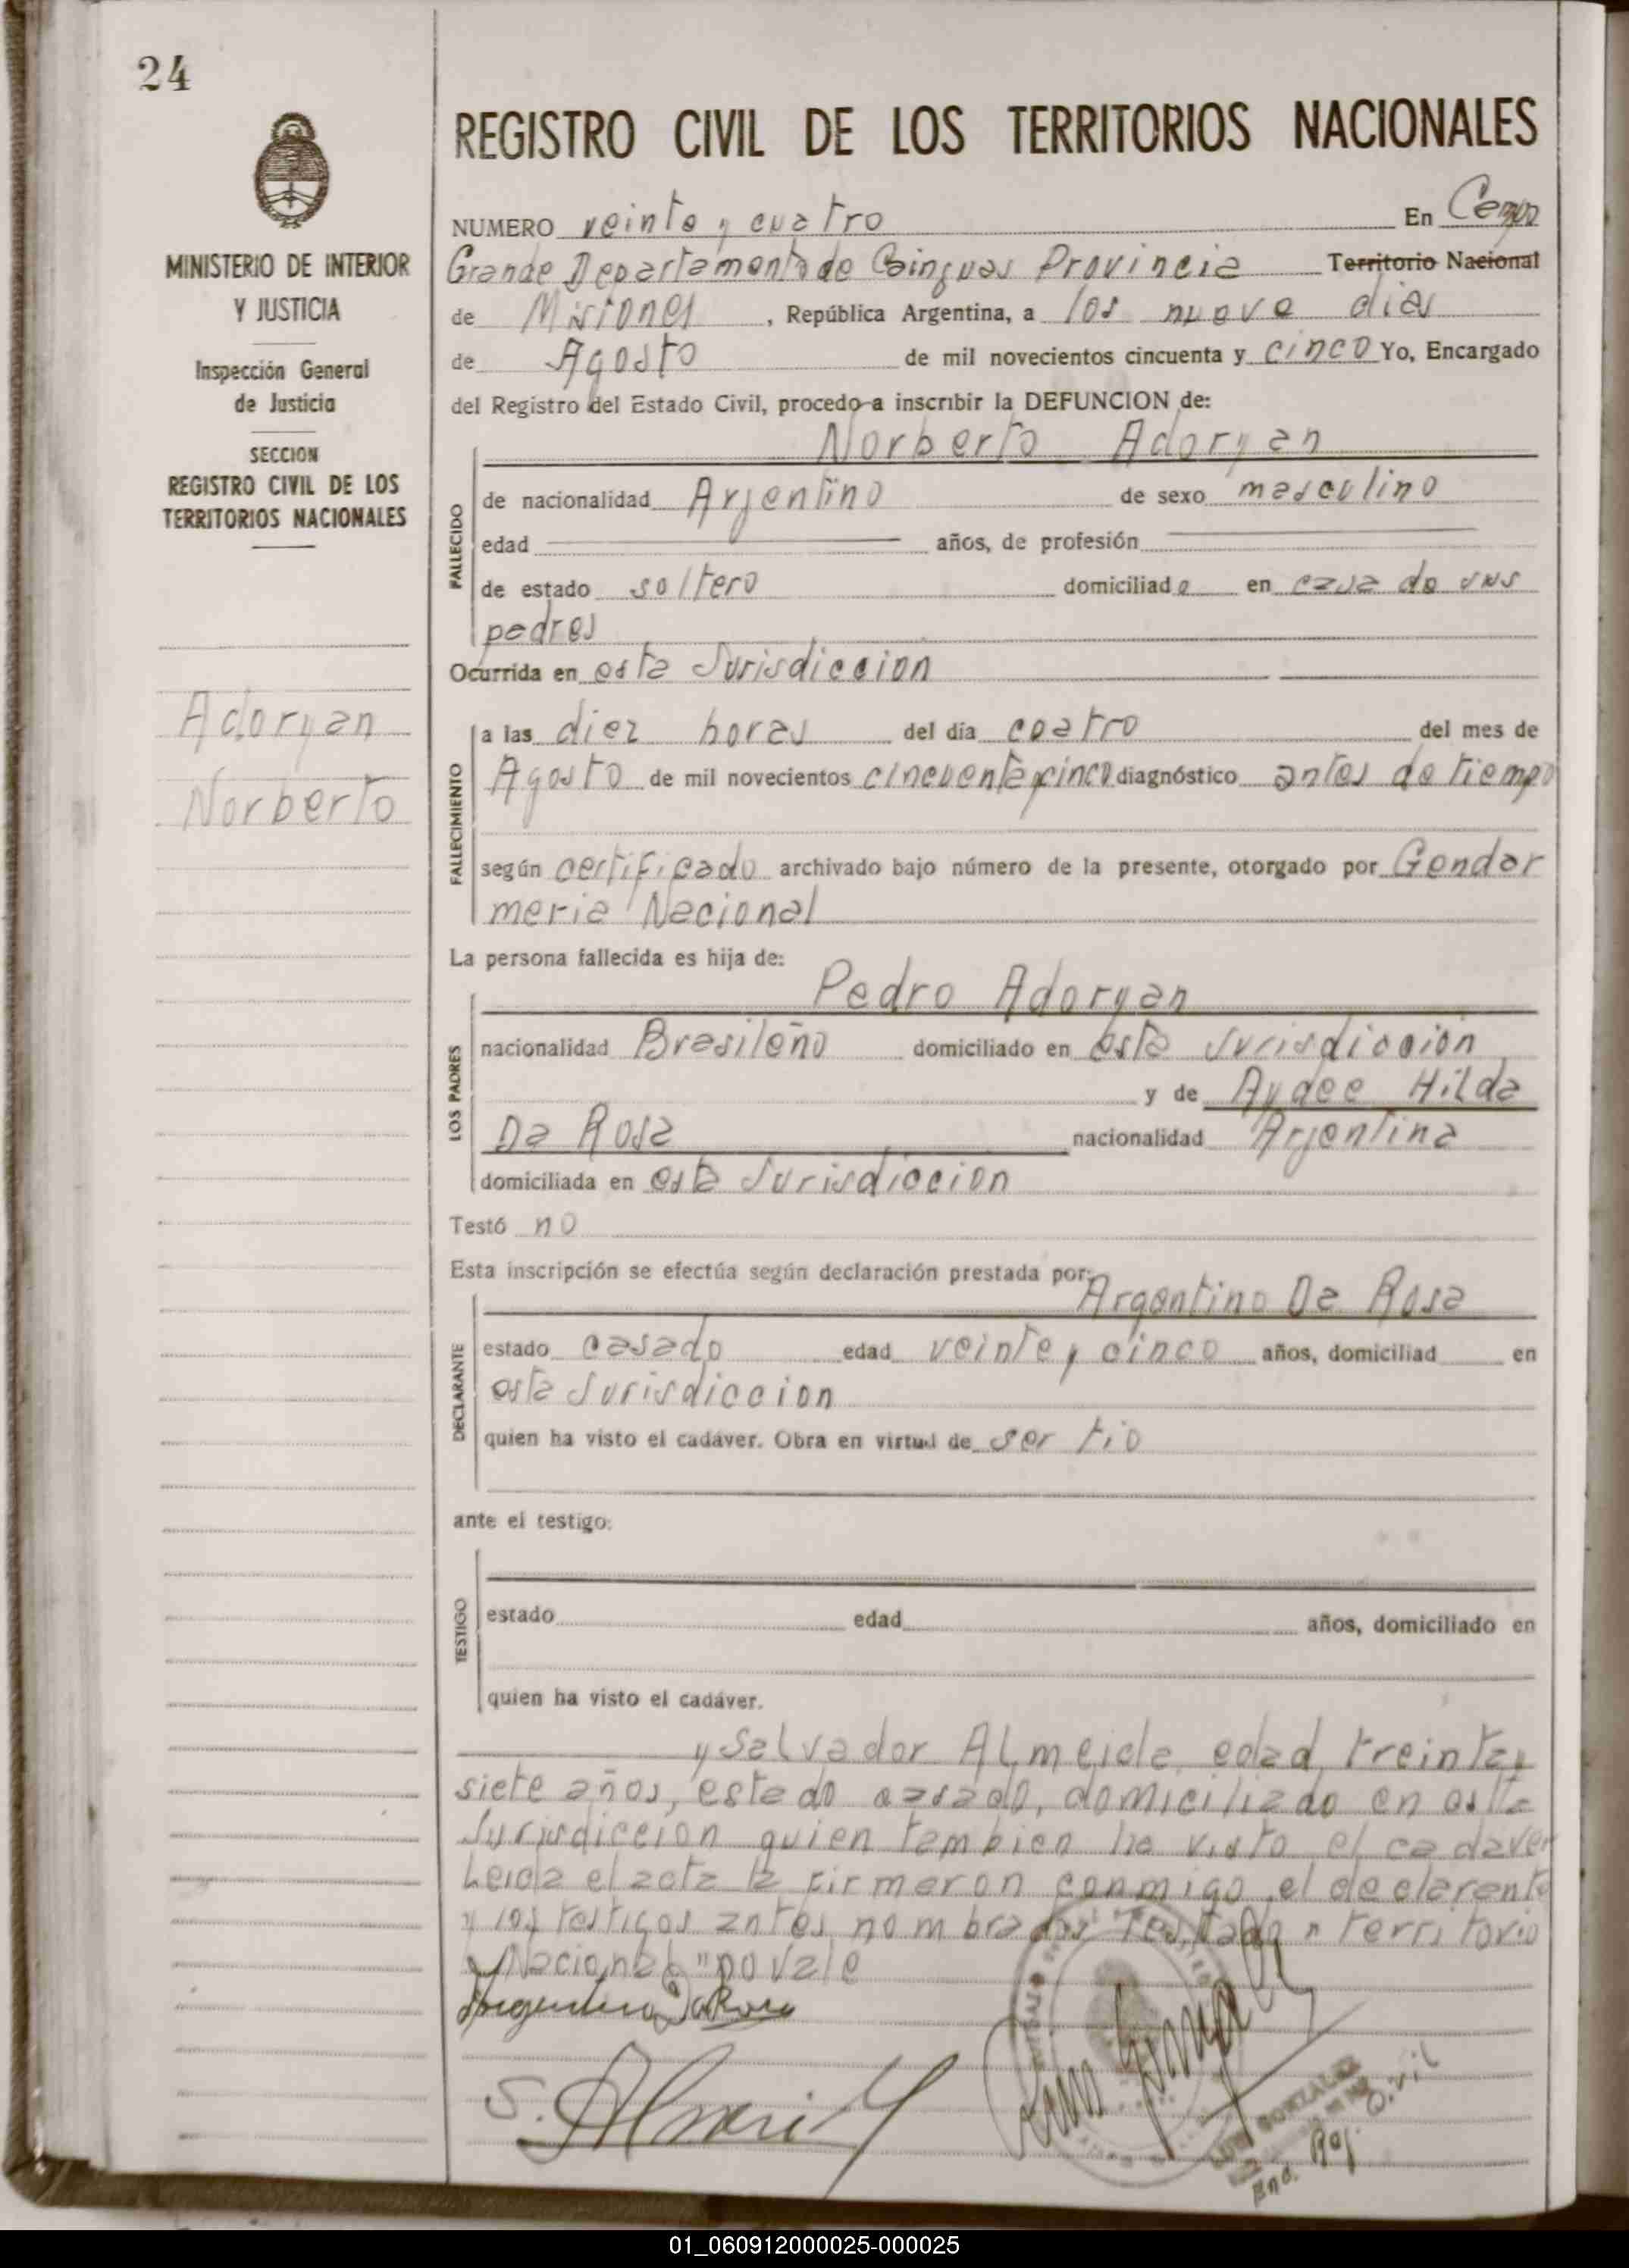 24
MINISTERIO DE INTERIOR
Y JUSTICIA
Inspección General
de Justicia
SECCION
REGISTRO CIVIL DE LOS
TERRITORIOS NACIONALES
Adoryan
Norberto
REGISTRO CIVIL DE LOS TERRITORIOS NACIONALES
NUMERO veinte y cuatro En Campo
Grande Departamento de Cainguas Provincia Territorio Nacional
de Misiones, República Argentina, a los nueve dias
de Agosto de mil novecientos cincuenta y cinco Yo, Encargado
del Registro del Estado Civil, procedo a inscribir la DEFUNCION de:
Norberto Adoryan
FALLECIDO
de nacionalidad Argentino de sexo masculino
edad años, de profesión
de estado soltero domiciliado en casa de sus
padres
Ocurrida en esta Jurisdiccion
FALLECIMIENTO
a las diez horas del día coatro del mes de
Agosto de mil novecientos cincuenta y cinco diagnóstico antes de tiempo
según certificado archivado bajo número de la presente, otorgado por Gendar
meria Nacional
La persona fallecida es hija de:
Pedro Adoryan
LOS PADRES
nacionalidad Brasileño domiciliado en esta Jurisdiccion
y de Aydee Hilda
Da Rosa nacionalidad Argentina
domiciliada en esta Jurisdiccion
Testó no
Esta inscripción se efectúa según declaración prestada por:
Argentino Da Rosa
DECLARANTE
estado casado edad veinte y cinco años, domiciliad en
esta Jurisdiccion
quien ha visto el cadáver. Obra en virtud de ser tio
ante el testigo:
TESTIGO
estado edad años, domiciliado en
quien ha visto el cadáver.
y Salvador Almeida edad treinta y
siete años, estado casado, domiciliado en esta
Jurisdiccion quien tambien ha visto el cadaver
Leida el acta la firmaron conmigo el declarante
y los testigos antes nombrados Testado " territorio
Nacional " no vale
Argentino Da Rosa
S. Almeida
LUIS GONZALEZ
End. Reg. Civil
01_060912000025-000025